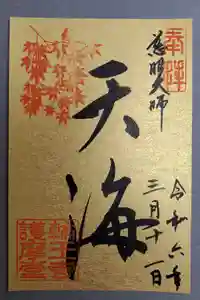 奉拝
慈眼大師
天海
令和六年
三月十一日
護摩堂